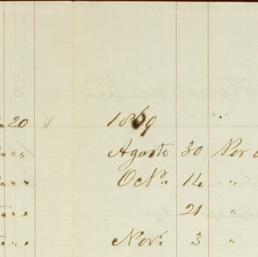 20 1869
" " Agosto 30 Nov
" " Octe. 14 "
" " 21 "
" " Nove. 3 "